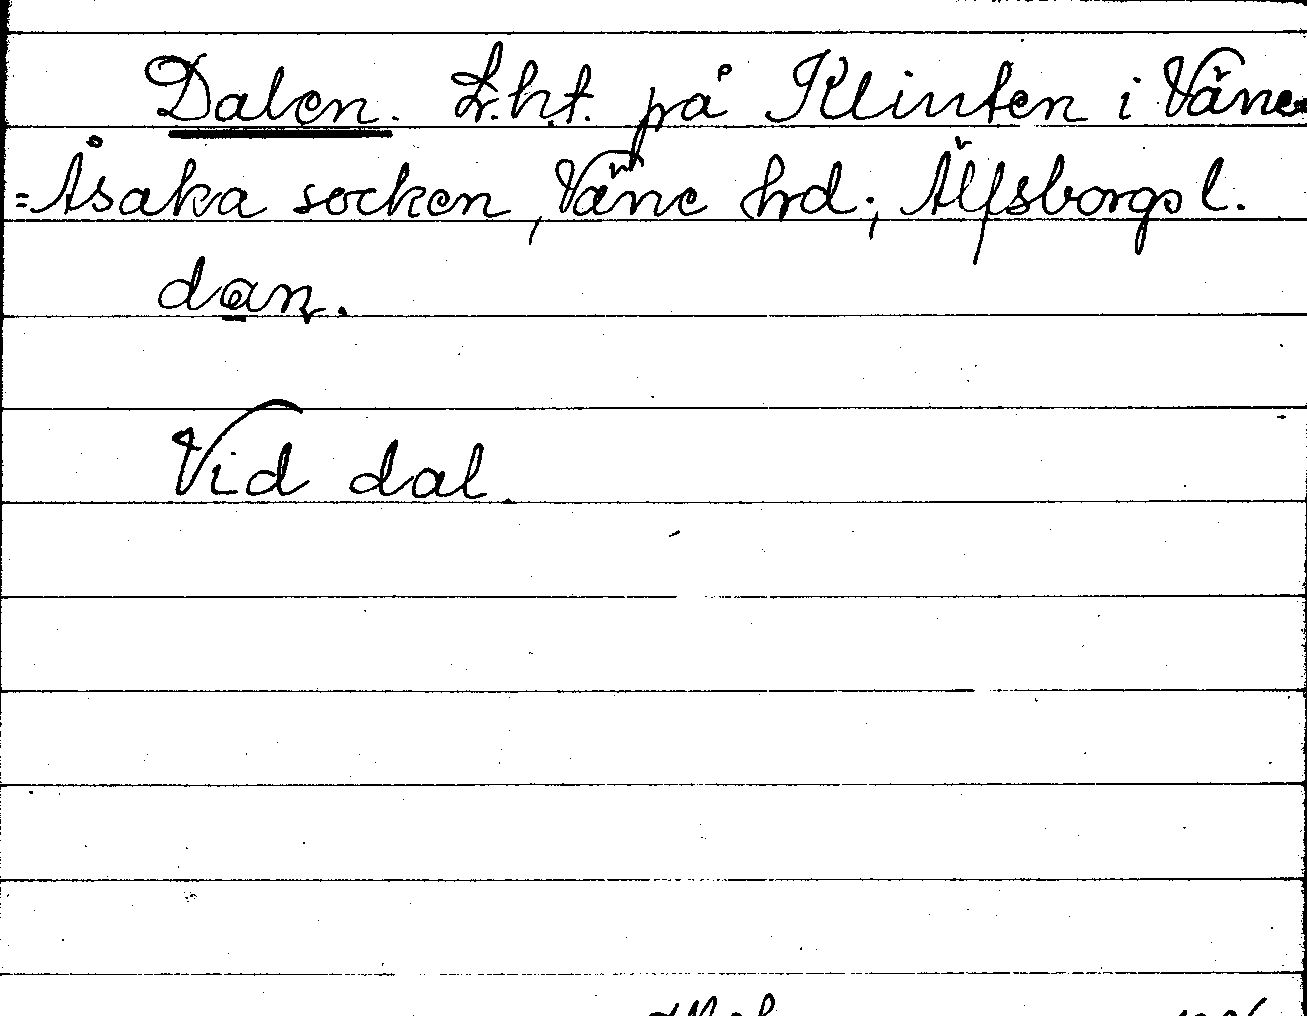 Dalen. L.h.t. på Klinten i Väne-
=Åsaka socken, Väne hrd., Älfsborgs l.
dan.
Vid dal.